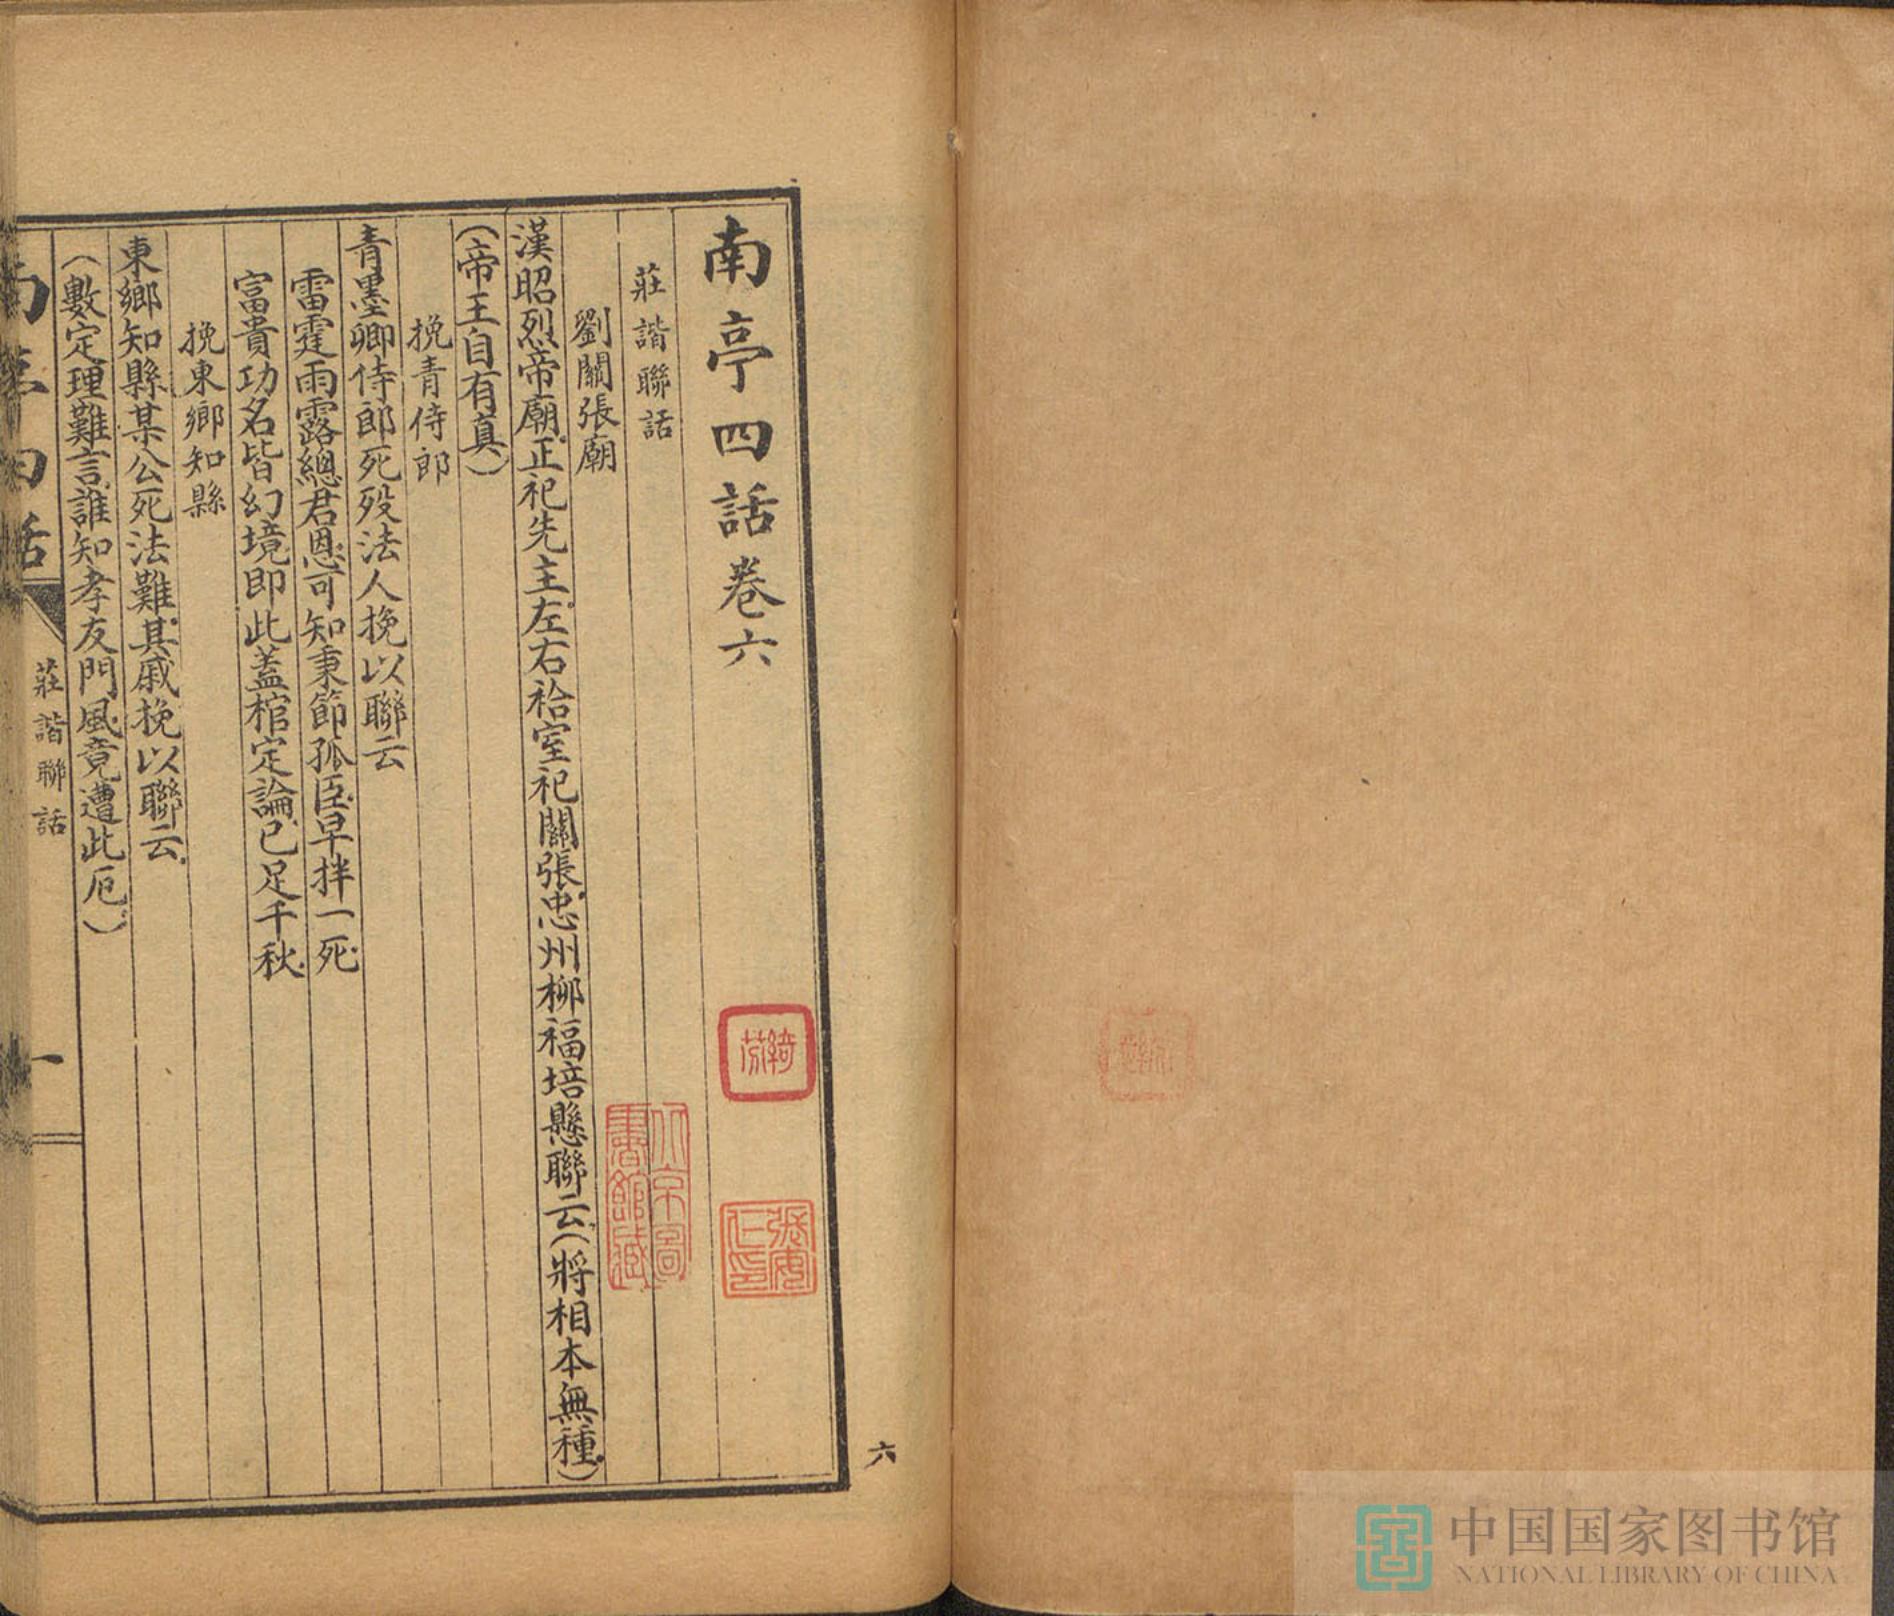 南亭四話卷六
莊諧聯話
劉關張廟
漢昭烈帝廟正祀先主左右袷室祀關張忠州柳福培懸聯云(將相本無種)
(帝王自有真)
挽青侍郎
青墨卿侍郎死歿法人挽以聯云
雷霆雨露總君恩可知秉節孤臣早拌一死
富貴功名皆幻境即此蓋棺定論已足千秋
挽東鄉知縣
東鄉知縣某公死法難其戚挽以聯云
(數定理難言誰知孝友門風竟遭此厄)
南亭四話
莊諧聯話
一
六
綺
張
仁印
北京圖
書館藏
中国国家图书馆
NATIONAL LIBRARY OF CHINA